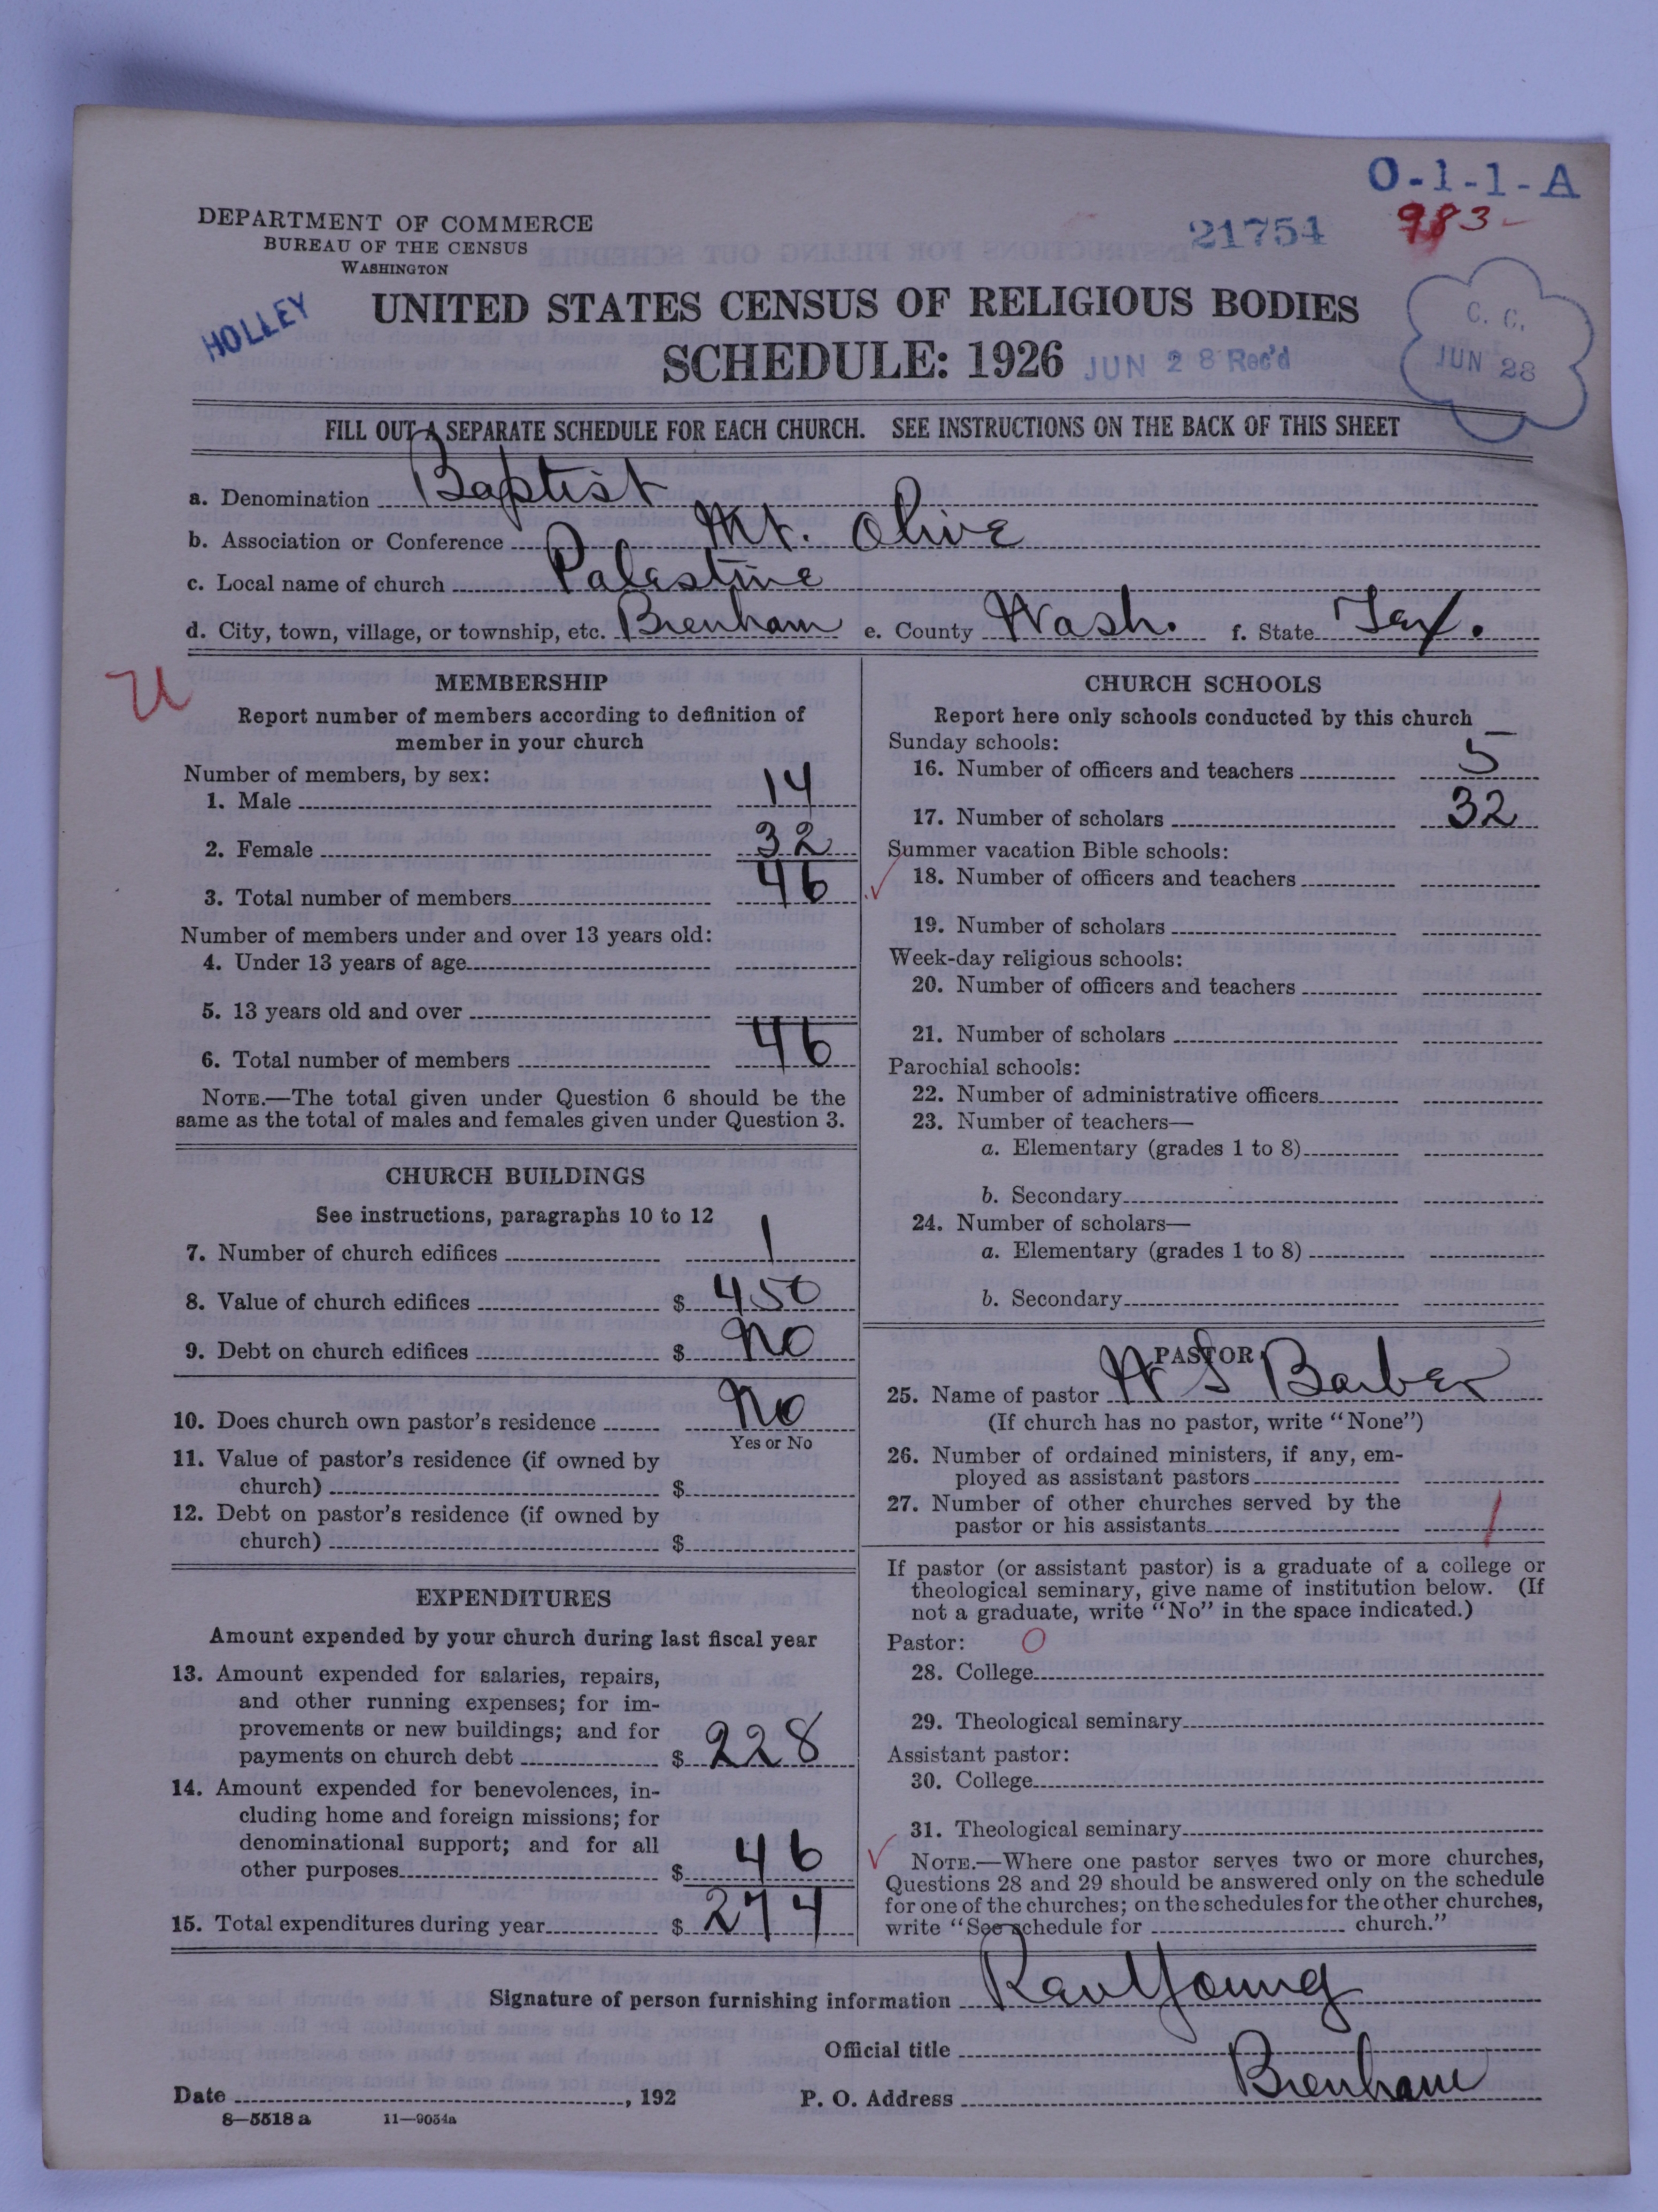 O-1-1-A
DEPARTMENT OF COMMERCE
BUREAU OF THE CENSUS
WASHINGTON
21754 983-
HOLLEY
UNITED STATES CENSUS OF RELIGIOUS BODIES
SCHEDULE: 1926 JUN 28 Rec'd
C. C.
JUN 28
FILL OUT A SEPARATE SCHEDULE FOR EACH CHURCH. SEE INSTRUCTIONS ON THE BACK OF THIS SHEET
a. Denomination Baptist
b. Association or Conference Mt. Olive
c. Local name of church Palestine
d. City, town, village, or township, etc. Brenham e. County Wash. f. State Tex.
U
MEMBERSHIP
Report number of members according to definition of
member in your church
Number of members, by sex:
1. Male 14
2. Female 32
3. Total number of members 46
Number of members under and over 13 years old:
4. Under 13 years of age
5. 13 years old and over
6. Total number of members 46
NOTE.—The total given under Question 6 should be the
same as the total of males and females given under Question 3.
CHURCH BUILDINGS
See instructions, paragraphs 10 to 12
7. Number of church edifices 1
8. Value of church edifices $ 450
9. Debt on church edifices $ No
10. Does church own pastor's residence No
Yes or No
11. Value of pastor's residence (if owned by
church) $
12. Debt on pastor's residence (if owned by
church) $
EXPENDITURES
Amount expended by your church during last fiscal year
13. Amount expended for salaries, repairs,
and other running expenses; for im-
provements or new buildings; and for
payments on church debt $ 228
14. Amount expended for benevolences, in-
cluding home and foreign missions; for
denominational support; and for all
other purposes $ 46
15. Total expenditures during year $ 274
CHURCH SCHOOLS
Report here only schools conducted by this church
Sunday schools:
16. Number of officers and teachers 5
17. Number of scholars 32
Summer vacation Bible schools:
18. Number of officers and teachers
19. Number of scholars
Week-day religious schools:
20. Number of officers and teachers
21. Number of scholars
Parochial schools:
22. Number of administrative officers
23. Number of teachers—
a. Elementary (grades 1 to 8)
b. Secondary
24. Number of scholars—
a. Elementary (grades 1 to 8)
b. Secondary
PASTOR
25. Name of pastor W S Barber
(If church has no pastor, write "None")
26. Number of ordained ministers, if any, em-
ployed as assistant pastors
27. Number of other churches served by the
pastor or his assistants 1
If pastor (or assistant pastor) is a graduate of a college or
theological seminary, give name of institution below. (If
not a graduate, write "No" in the space indicated.)
Pastor: O
28. College
29. Theological seminary
Assistant pastor:
30. College
31. Theological seminary
NOTE.—Where one pastor serves two or more churches,
Questions 28 and 29 should be answered only on the schedule
for one of the churches; on the schedules for the other churches,
write "See schedule for church."
Signature of person furnishing information Rev Young
Official title
Date , 192 P. O. Address Brenham
8—5518 a 11—9054a